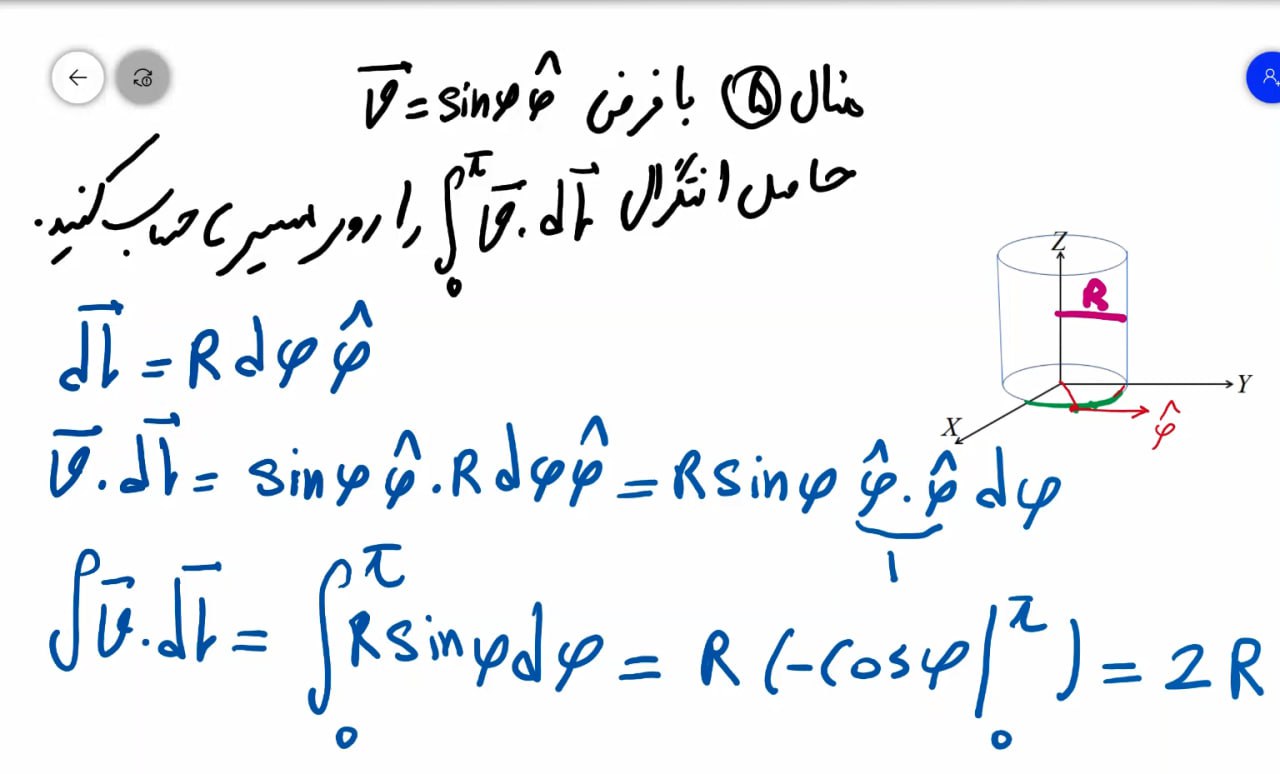 مثال ⑤ با فرض v⃗ = sinφ φ̂
حاصل انتگرال ∫₀^π v⃗ . dl⃗ را روی مسیر c حساب کنید.
Z
R
Y
X
φ̂
dl⃗ = R dφ φ̂
v⃗ . dl⃗ = sinφ φ̂ . R dφ φ̂ = R sinφ φ̂ . φ̂ dφ
1
∫ v⃗ . dl⃗ = ∫₀^π R sinφ dφ = R (-cosφ |₀^π) = 2R